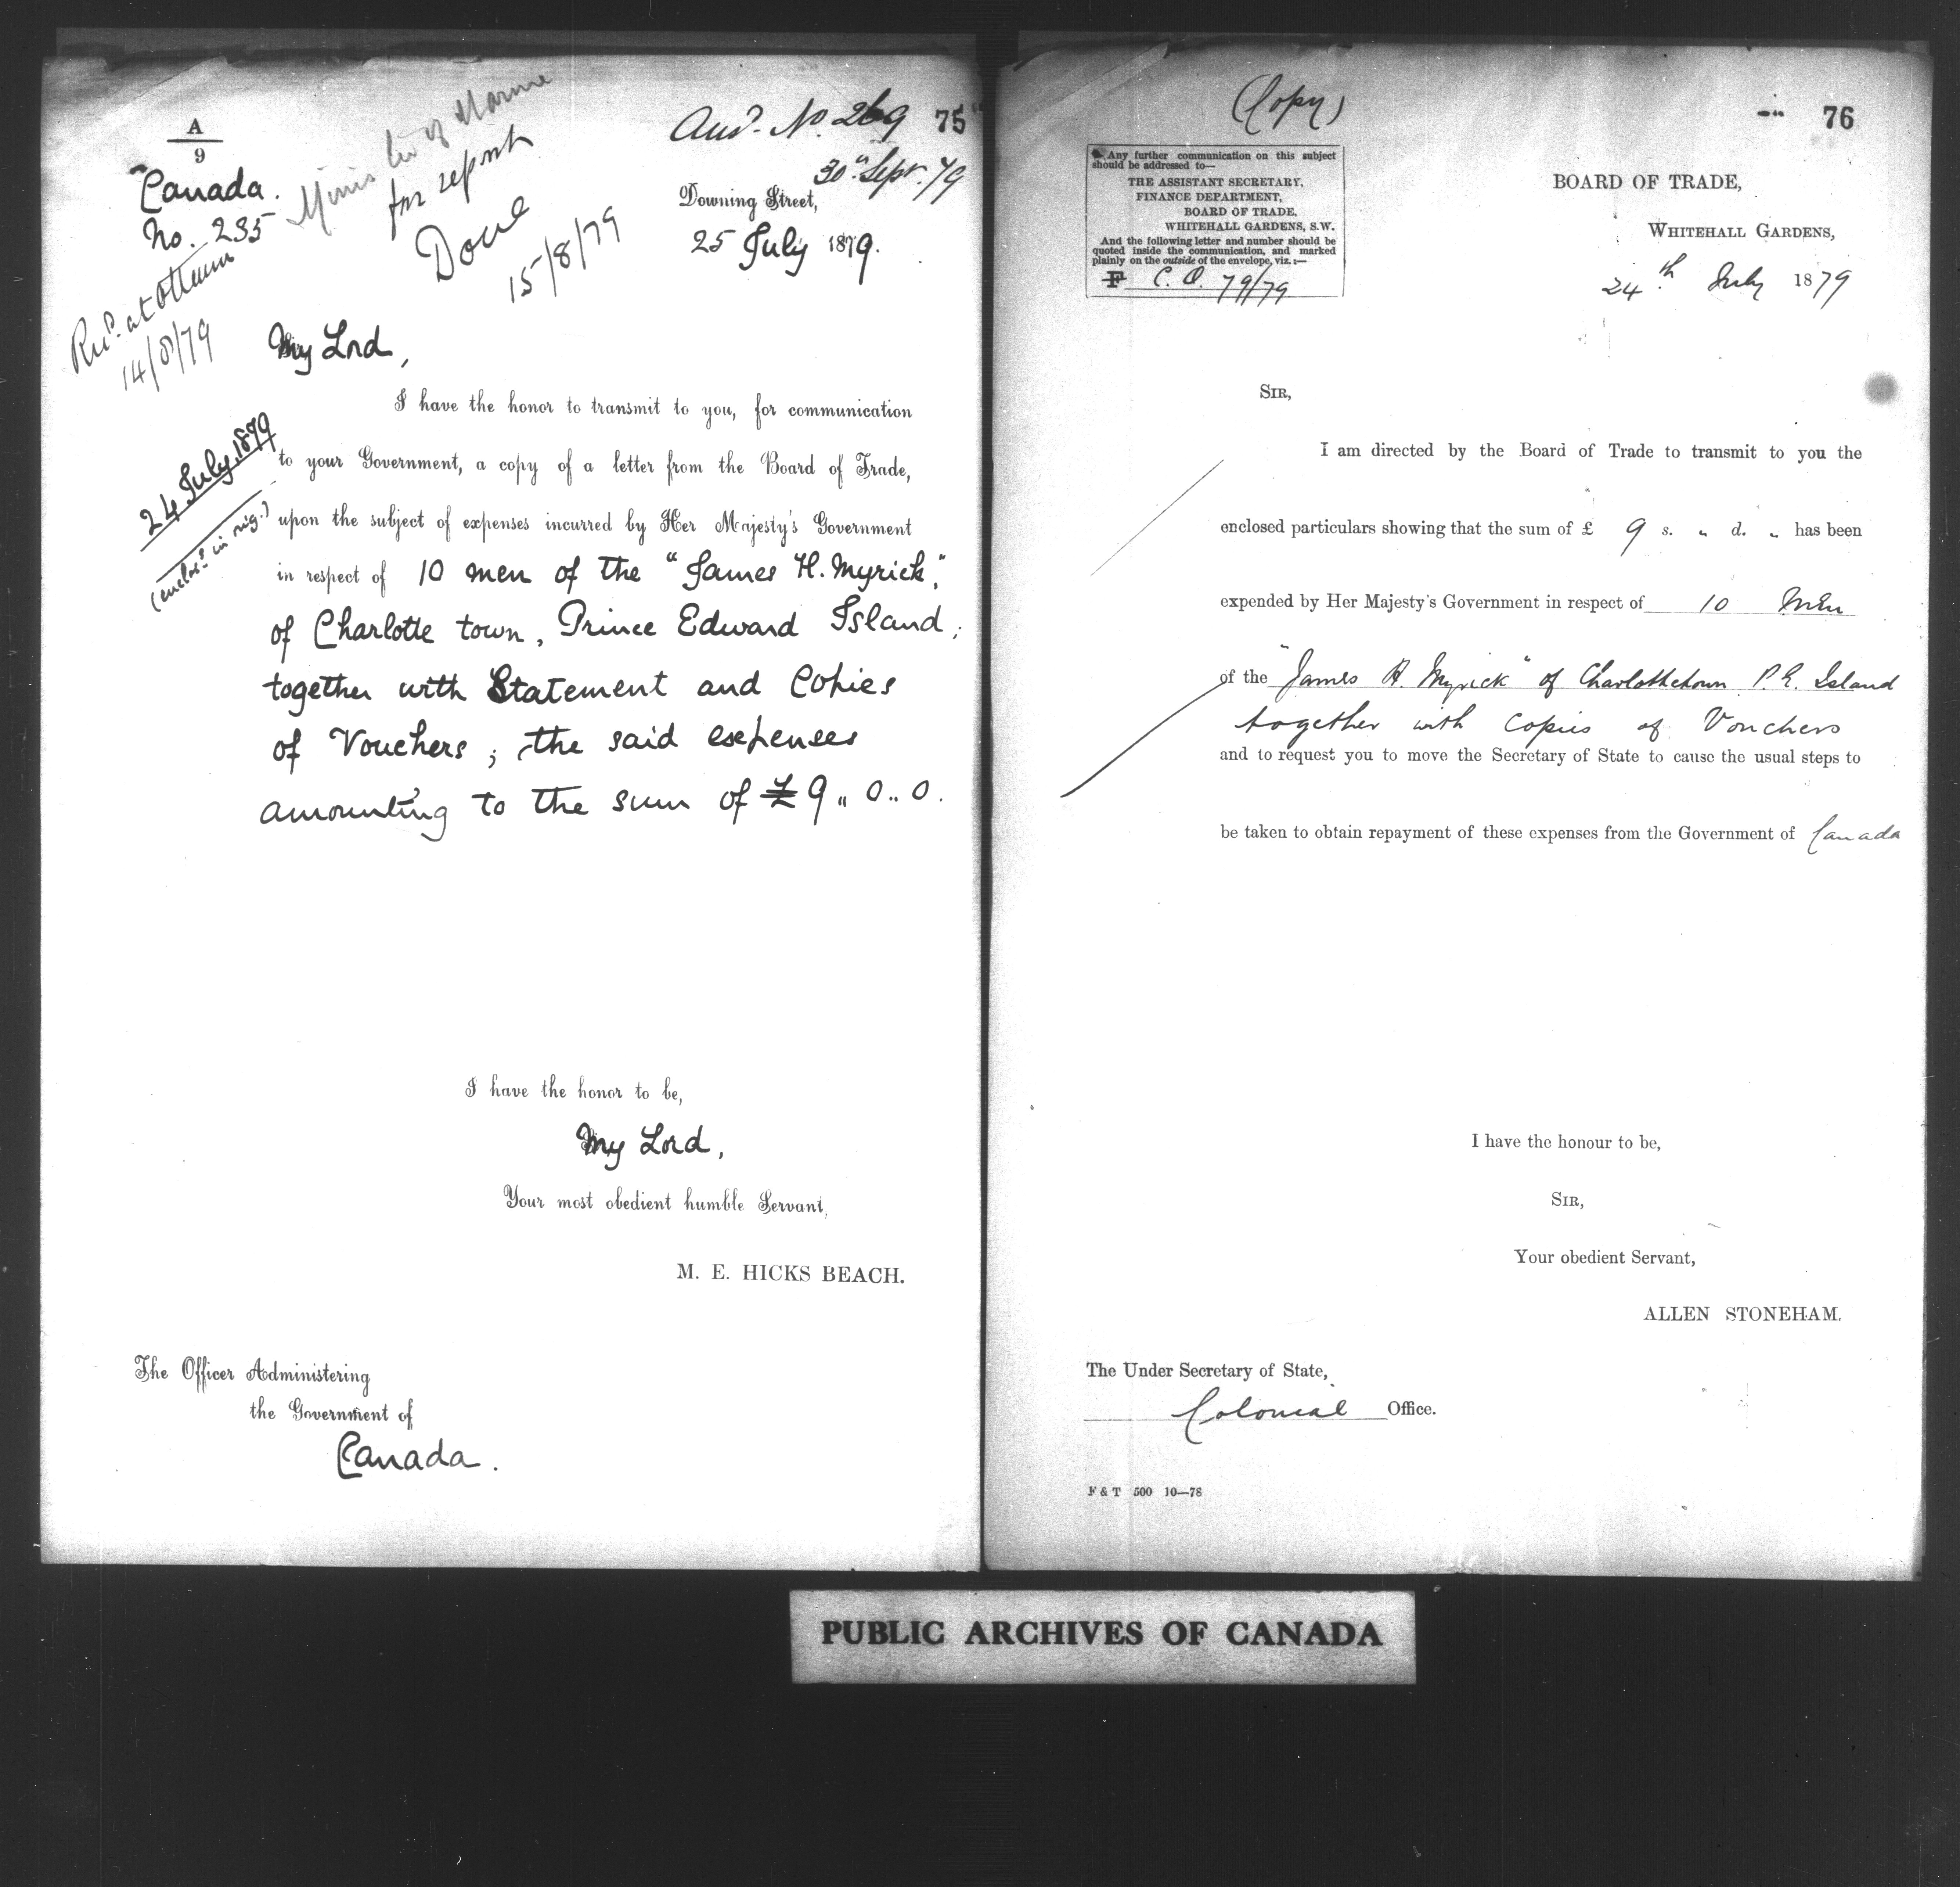 A
9
Canada.
No. 235
Minister of Marine
for report
Done
15/8/79
Ansd. No. 269
75
30th Sept. 79
Downing Street,
25 July 1879.
Recd. at Ottawa
14/8/79
My Lord,
24 July, 1879
(enclos. in orig.)
I have the honor to transmit to you, for communication
to your Government, a copy of a letter from the Board of Trade,
upon the subject of expenses incurred by Her Majesty's Government
in respect of 10 men of the "James H. Myrick,"
of Charlotte town, Prince Edward Island;
together with Statement and Copies
of Vouchers; the said expenses
amounting to the sum of £9.. 0.. 0.
I have the honor to be,
My Lord,
Your most obedient humble Servant,
M. E. HICKS BEACH.
The Officer Administering
the Government of
Canada.
(Copy)
76
Any further communication on this subject
should be addressed to—
THE ASSISTANT SECRETARY,
FINANCE DEPARTMENT,
BOARD OF TRADE,
WHITEHALL GARDENS, S.W.
And the following letter and number should be
quoted inside the communication, and marked
plainly on the outside of the envelope, viz.:—
F C. O. 79/79
BOARD OF TRADE,
WHITEHALL GARDENS,
24th July 1879
SIR,
I am directed by the Board of Trade to transmit to you the
enclosed particulars showing that the sum of £ 9 s. " d. " has been
expended by Her Majesty's Government in respect of 10 Men
of the "James H. Myrick" of Charlottetown P. E. Island
together with copies of Vouchers
and to request you to move the Secretary of State to cause the usual steps to
be taken to obtain repayment of these expenses from the Government of Canada
I have the honour to be,
SIR,
Your obedient Servant,
ALLEN STONEHAM.
The Under Secretary of State,
Colonial Office.
F & T 500 10—78
PUBLIC ARCHIVES OF CANADA